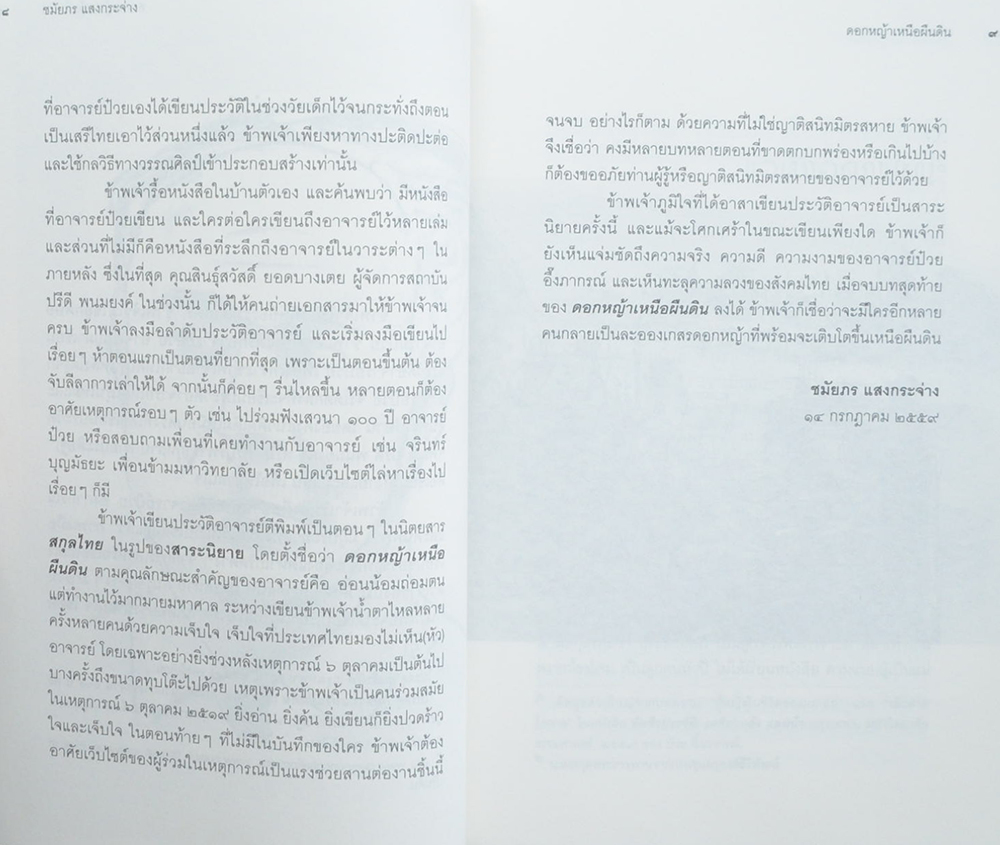 ๘ ชมัยภร แสงกระจ่าง
ที่อาจารย์ป๋วยเองได้เขียนประวัติในช่วงวัยเด็กไว้จนกระทั่งถึงตอน
เป็นเสรีไทยเอาไว้ส่วนหนึ่งแล้ว ข้าพเจ้าเพียงหาทางปะติดปะต่อ
และใช้กลวิธีทางวรรณศิลป์เข้าประกอบสร้างเท่านั้น
ข้าพเจ้ารื้อหนังสือในบ้านตัวเอง และค้นพบว่า มีหนังสือ
ที่อาจารย์ป๋วยเขียน และใครต่อใครเขียนถึงอาจารย์ไว้หลายเล่ม
และส่วนที่ไม่มีก็คือหนังสือที่ระลึกถึงอาจารย์ในวาระต่างๆ ใน
ภายหลัง ซึ่งในที่สุด คุณสินธุ์สวัสดิ์ ยอดบางเตย ผู้จัดการสถาบัน
ปรีดี พนมยงค์ ในช่วงนั้น ก็ได้ให้คนถ่ายเอกสารมาให้ข้าพเจ้าจน
ครบ ข้าพเจ้าลงมือลำดับประวัติอาจารย์ และเริ่มลงมือเขียนไป
เรื่อยๆ ห้าตอนแรกเป็นตอนที่ยากที่สุด เพราะเป็นตอนขึ้นต้น ต้อง
จับลีลาการเล่าให้ได้ จากนั้นก็ค่อยๆ รื่นไหลขึ้น หลายตอนก็ต้อง
อาศัยเหตุการณ์รอบๆ ตัว เช่น ไปร่วมฟังเสวนา ๑๐๐ ปี อาจารย์
ป๋วย หรือสอบถามเพื่อนที่เคยทำงานกับอาจารย์ เช่น จรินทร์
บุญมัธยะ เพื่อนข้ามมหาวิทยาลัย หรือเปิดเว็บไซต์ไล่หาเรื่องไป
เรื่อยๆ ก็มี
ข้าพเจ้าเขียนประวัติอาจารย์ตีพิมพ์เป็นตอนๆ ในนิตยสาร
สกุลไทย ในรูปของสาระนิยาย โดยตั้งชื่อว่า ดอกหญ้าเหนือ
ผืนดิน ตามคุณลักษณะสำคัญของอาจารย์คือ อ่อนน้อมถ่อมตน
แต่ทำงานไว้มากมายมหาศาล ระหว่างเขียนข้าพเจ้าน้ำตาไหลหลาย
ครั้งหลายคนด้วยความเจ็บใจ เจ็บใจที่ประเทศไทยมองไม่เห็น(หัว)
อาจารย์ โดยเฉพาะอย่างยิ่งช่วงหลังเหตุการณ์ ๖ ตุลาคมเป็นต้นไป
บางครั้งถึงขนาดทุบโต๊ะไปด้วย เหตุเพราะข้าพเจ้าเป็นคนร่วมสมัย
ในเหตุการณ์ ๖ ตุลาคม ๒๕๑๙ ยิ่งอ่าน ยิ่งค้น ยิ่งเขียนก็ยิ่งปวดร้าว
ใจและเจ็บใจ ในตอนท้ายๆ ที่ไม่มีในบันทึกของใคร ข้าพเจ้าต้อง
อาศัยเว็บไซต์ของผู้ร่วมในเหตุการณ์เป็นแรงช่วยสานต่องานชิ้นนี้
ดอกหญ้าเหนือผืนดิน ๙
จนจบ อย่างไรก็ตาม ด้วยความที่ไม่ใช่ญาติสนิทมิตรสหาย ข้าพเจ้า
จึงเชื่อว่า คงมีหลายบทหลายตอนที่ขาดตกบกพร่องหรือเกินไปบ้าง
ก็ต้องขออภัยท่านผู้รู้หรือญาติสนิทมิตรสหายของอาจารย์ไว้ด้วย
ข้าพเจ้าภูมิใจที่ได้อาสาเขียนประวัติอาจารย์เป็นสาระ
นิยายครั้งนี้ และแม้จะโศกเศร้าในขณะเขียนเพียงใด ข้าพเจ้าก็
ยังเห็นแจ่มชัดถึงความจริง ความดี ความงามของอาจารย์ป๋วย
อึ๊งภากรณ์ และเห็นทะลุความลวงของสังคมไทย เมื่อจบบทสุดท้าย
ของ ดอกหญ้าเหนือผืนดิน ลงได้ ข้าพเจ้าก็เชื่อว่าจะมีใครอีกหลาย
คนกลายเป็นละอองเกสรดอกหญ้าที่พร้อมจะเติบโตขึ้นเหนือผืนดิน
ชมัยภร แสงกระจ่าง
๑๔ กรกฎาคม ๒๕๕๙